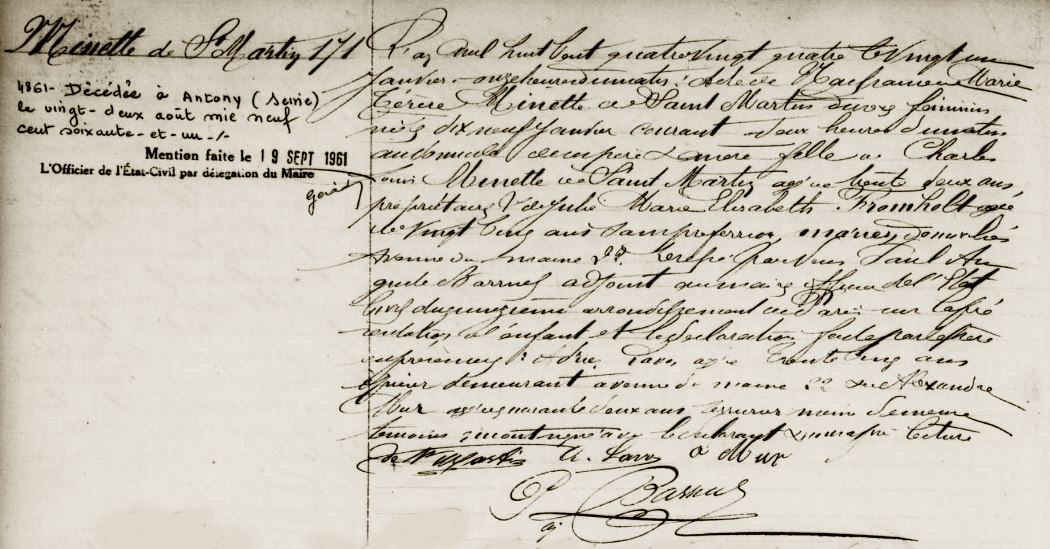 Minette de St Martin 171
4861- Décédée à Antony (Seine)
le vingt-deux août mil neuf
cent soixante-et-un-/-
Mention faite le 19 SEPT 1961
L'Officier de l'État-Civil par délégation du Maire
L'an mil huit cent quatrevingt quatre le vingt un
Janvier onze heures du matin : Acte de Naissance Marie
Minette de Saint Martin du sexe féminin
née dix neuf Janvier courant deux heures du matin
au domicile de ses père & mère fille de Charles
Louis Minette de Saint Martin agé de trente deux ans,
propriétaire & de Julie Marie Elisabeth Fromholt agée
de vingt cinq ans sans profession, mariés, domiciliés
Avenue du maine 22. Dressé par Nous Paul
adjoint au maire officier de l'Etat
Civil du quinzième arrondissement de Paris sur la pré
sentation de l'enfant et la déclaration faite par le père
en présence de agé de trente cinq ans
Epicier demeurant avenue du maine 22 et de Alexandre
Mur agé de quarante deux ans serrurier même demeure
témoins qui ont signé avec le déclarant & nous après lecture
de St Martin A. Mur